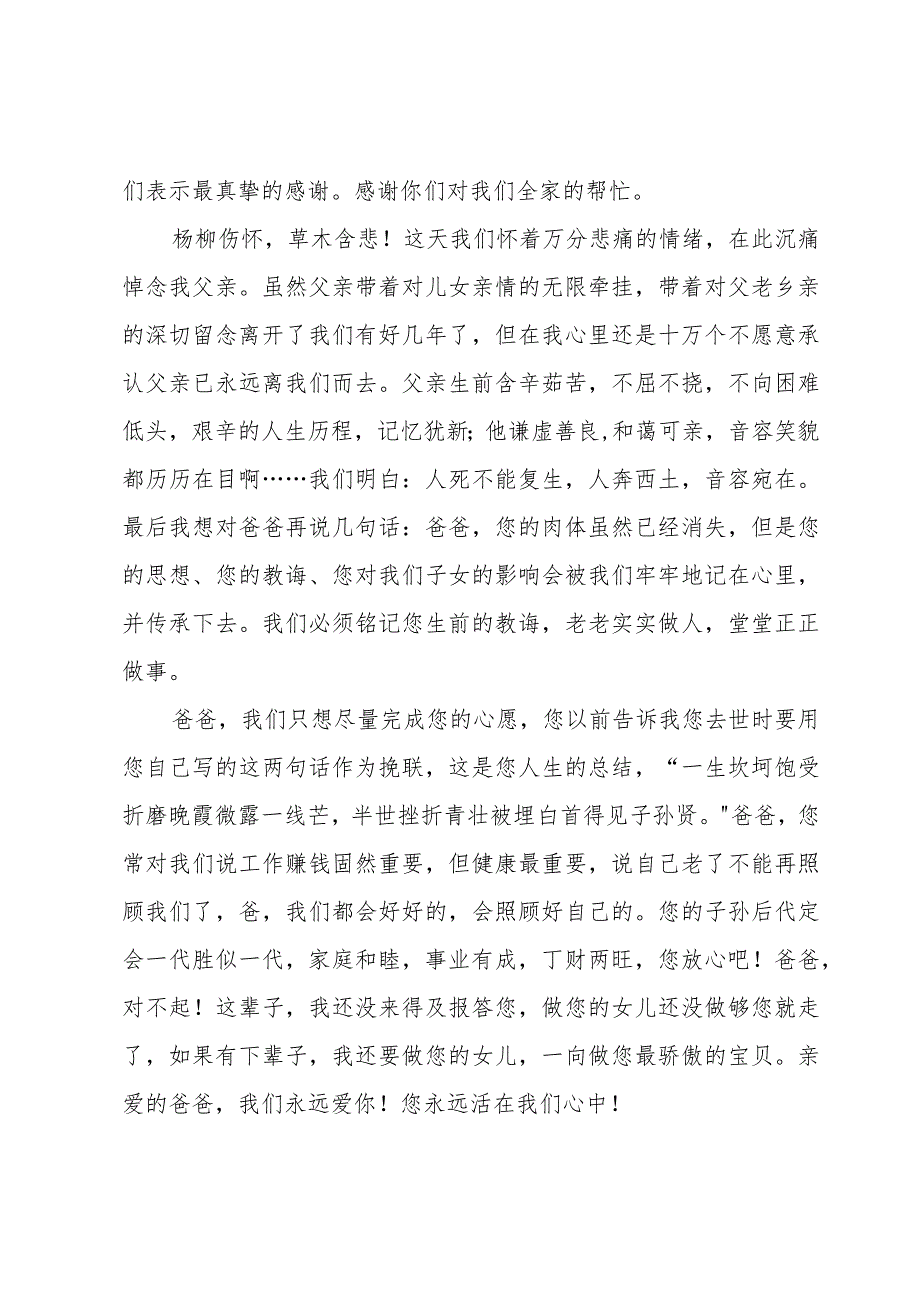 们表示最真挚的感谢。感谢你们对我们全家的帮忙。
杨柳伤怀，草木含悲！这天我们怀着万分悲痛的情绪，在此沉痛
悼念我父亲。虽然父亲带着对儿女亲情的无限牵挂，带着对父老乡亲
的深切留念离开了我们有好几年了，但在我心里还是十万个不愿意承
认父亲已永远离我们而去。父亲生前含辛茹苦，不屈不挠，不向困难
低头，艰辛的人生历程，记忆犹新；他谦虚善良,和蔼可亲，音容笑貌
都历历在目啊……我们明白：人死不能复生，人奔西土，音容宛在。
最后我想对爸爸再说几句话：爸爸，您的肉体虽然已经消失，但是您
的思想、您的教诲、您对我们子女的影响会被我们牢牢地记在心里，
并传承下去。我们必须铭记您生前的教诲，老老实实做人，堂堂正正
做事。
爸爸，我们只想尽量完成您的心愿，您以前告诉我您去世时要用
您自己写的这两句话作为挽联，这是您人生的总结，“一生坎坷饱受
折磨晚霞微露一线芒，半世挫折青壮被埋白首得见子孙贤。"爸爸，您
常对我们说工作赚钱固然重要，但健康最重要，说自己老了不能再照
顾我们了，爸，我们都会好好的，会照顾好自己的。您的子孙后代定
会一代胜似一代，家庭和睦，事业有成，丁财两旺，您放心吧！爸爸，
对不起！这辈子，我还没来得及报答您，做您的女儿还没做够您就走
了，如果有下辈子，我还要做您的女儿，一向做您最骄傲的宝贝。亲
爱的爸爸，我们永远爱你！您永远活在我们心中！